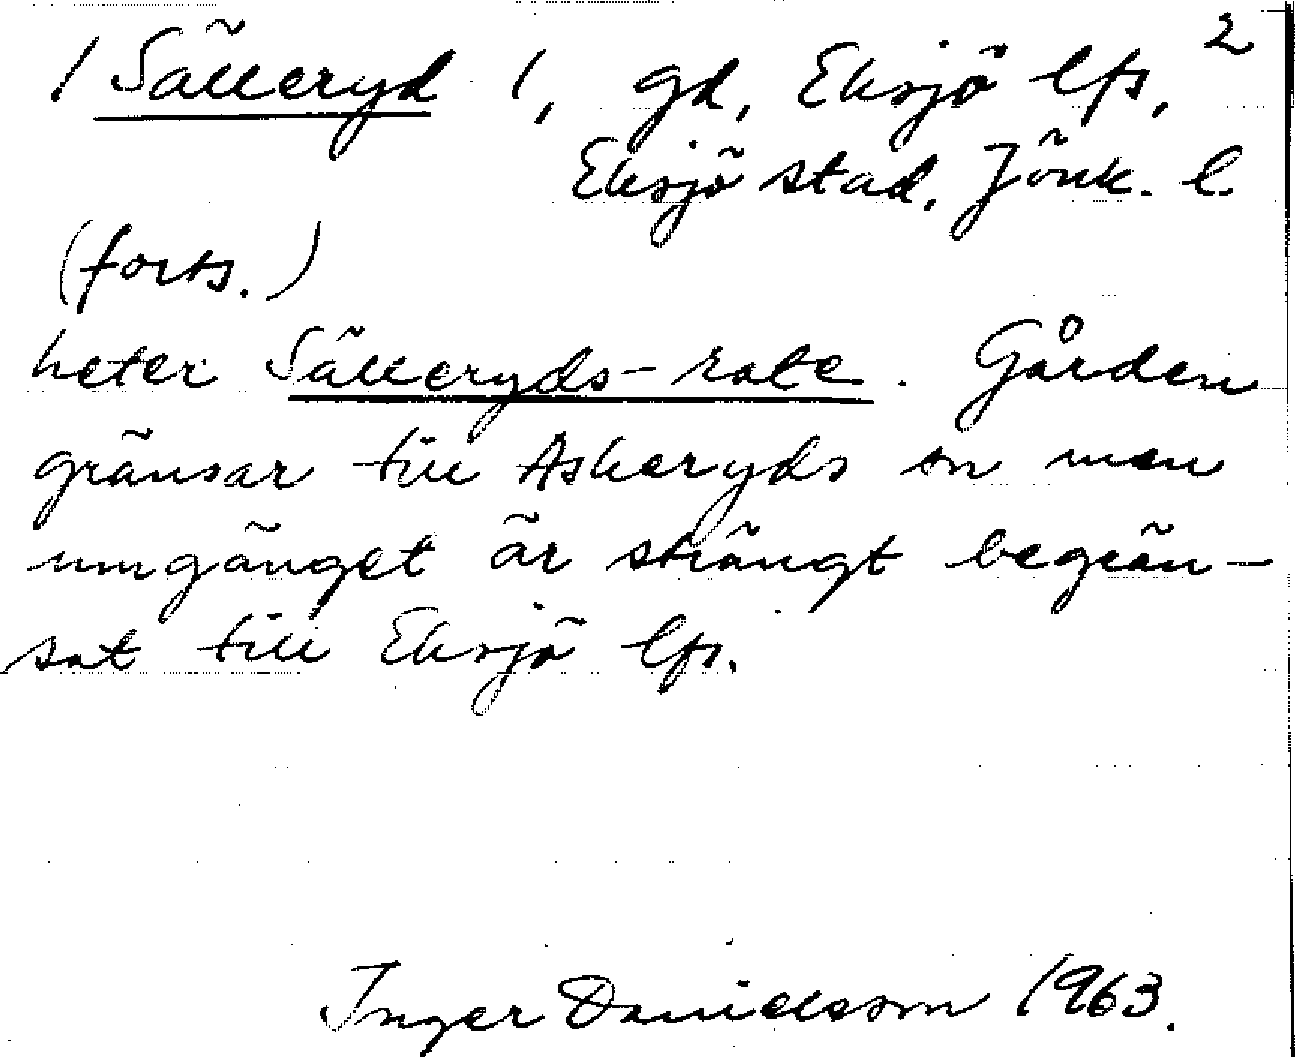 2
/ Sälleryd /, gd, Eksjö lfs,
Eksjö stad. Jönk. l.
(forts.)
heter Sälleryds-rote. Gården
gränsar till Askeryds sn men
umgänget är strängt begrän-
sat till Eksjö lfs.
Inger Danielsson 1963.